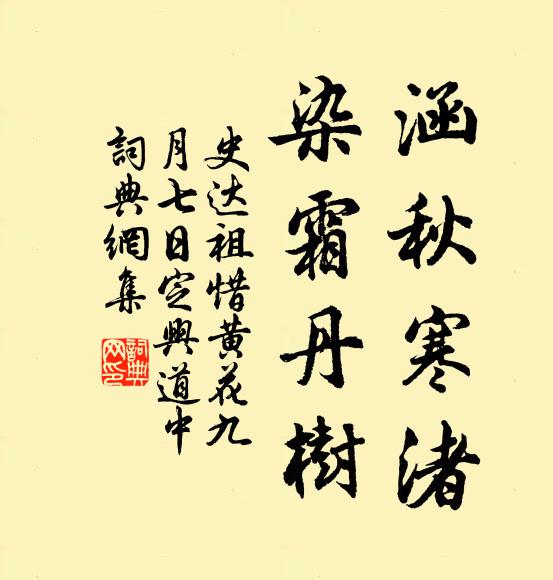 涵秋寒渚
染霜丹樹
史达祖惜黄花九
月七日定興道中
詞典網集
詞典網印